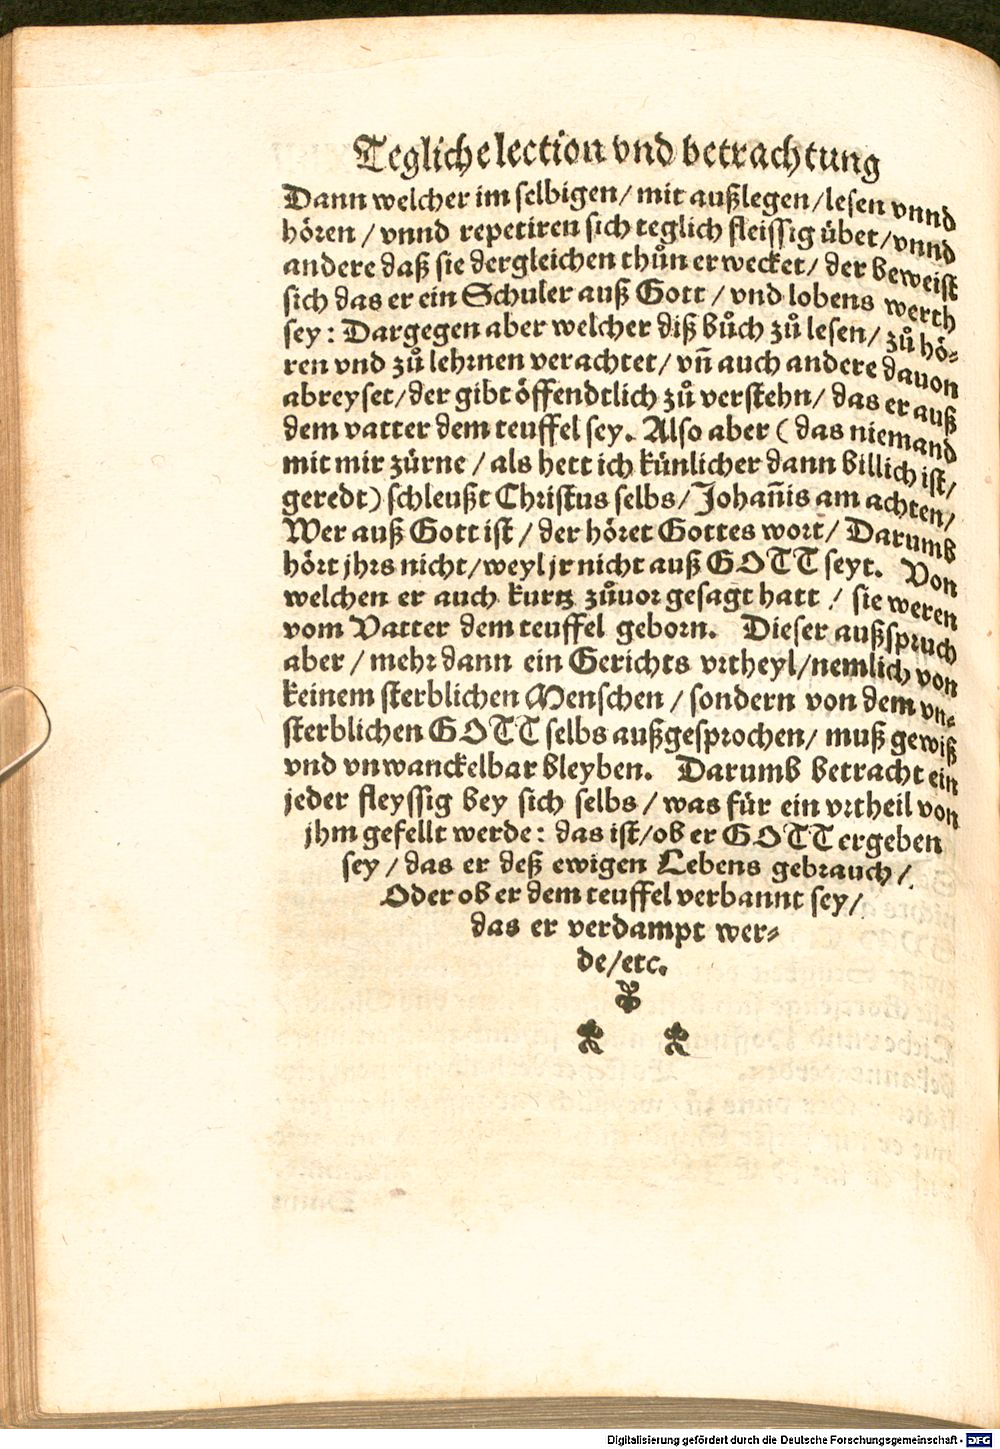 Tegliche lection vnd betrachtung
Dann welcher im selbigen/ mit außlegen/ lesen vnnd
hören / vnnd repetiren sich teglich fleissig übet/ vnnd
andere daß sie dergleichen thůn erwecket/ der beweist
sich das er ein Schuler auß Gott / vnd lobens werth
sey: Dargegen aber welcher diß bůch zů lesen/ zů hö⸗
ren vnd zů lehrnen verachtet/ vñ auch andere dauon
abreyset/ der gibt öffendtlich zů verstehn/ das er auß
dem vatter dem teuffel sey. Also aber ( das niemand
mit mir zürne / als hett ich künlicher dann billich ist/
geredt) schleußt Christus selbs/ Johañis am achten/
Wer auß Gott ist / der höret Gottes wort/ Darumb
hört jhrs nicht/ weyl jr nicht auß GOTT seyt. Von
welchen er auch kurtz zůuor gesagt hatt / sie weren
vom Vatter dem teuffel geborn. Dieser außspruch
aber / mehr dann ein Gerichts vrtheyl/ nemlich von
keinem sterblichen Menschen / sondern von dem vn⸗
sterblichen GOTT selbs außgesprochen/ muß gewiß
vnd vnwanckelbar bleyben. Darumb betracht ein
jeder fleyssig bey sich selbs / was für ein vrtheil von
jhm gefellt werde: das ist/ ob er GOTT ergeben
sey / das er deß ewigen Lebens gebrauch /
Oder ob er dem teuffel verbannt sey/
das er verdampt wer⸗
de/ etc.
Digitalisierung gefördert durch die Deutsche Forschungsgemeinschaft - DFG